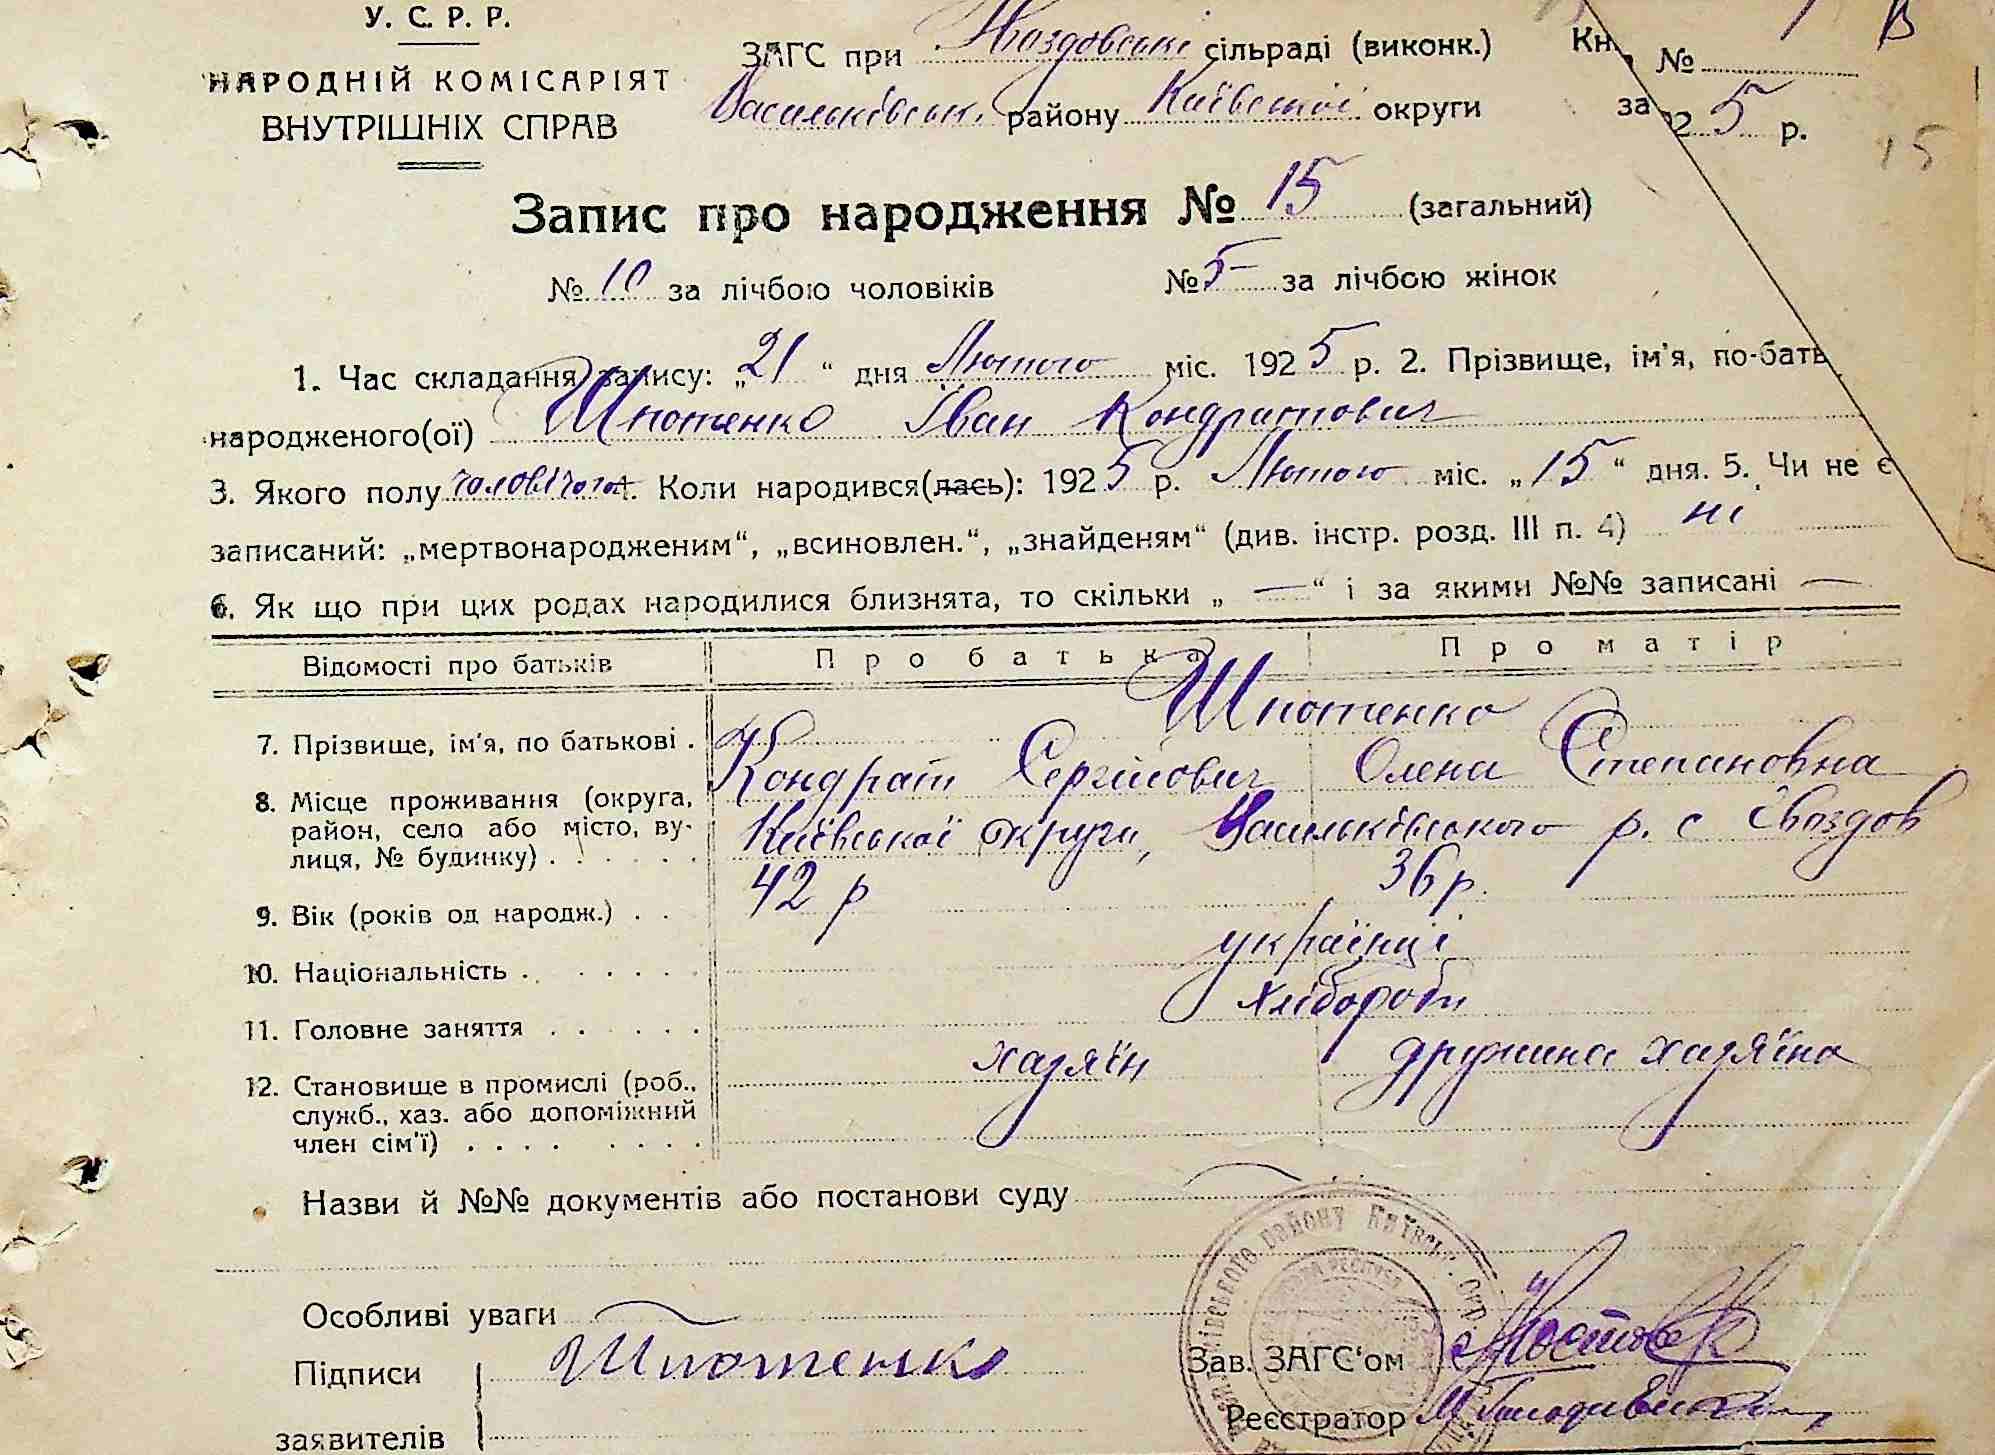 У. С. Р. Р.
НАРОДНІЙ КОМІСАРІЯТ
ВНУТРІШНІХ СПРАВ
ЗАГС при Гвоздовські сільраді (виконк.)
Васильківськ. району Київської округи
Кн № 1 В
за 92 5 р.
15
Запис про народження № 15 (загальний)
№ 10 за лічбою чоловіків № 5 за лічбою жінок
1. Час складання запису: „21“ дня Лютого міс. 1925 р. 2. Прізвище, ім'я, по-бать
народженого(ої) Шпотенко Іван Кондратович
3. Якого полу чоловічого 4. Коли народився(лась): 1925 р. Лютого міс. „15“ дня. 5. Чи не є
записаний: „мертвонародженим“, „всиновлен.“, „знайденям“ (див. інстр. розд. III п. 4) ні
6. Як що при цих родах народилися близнята, то скільки „ — “ і за якими №№ записані —
Відомості про батьків Про батька Про матір
Шпотенко
7. Прізвище, ім'я, по батькові . Кондрат Сергійович Олена Степановна
8. Місце проживання (округа, район, село або місто, ву-
лиця, № будинку) . . . . . . Київської округи, Васильківського р. с Гвоздов
9. Вік (років од народж.) . . 42 р 36 р.
10. Національність . . . . . . українці
11. Головне заняття . . . . . . хлібороби
12. Становище в промислі (роб., хазяїн дружина хазяїна
служб., хаз. або допоміжний
член сім'ї) . . . . . . . .
Назви й №№ документів або постанови суду
Особливі уваги
Підписи Шпотенко
заявителів
Зав. ЗАГС'ом
Реєстратор
району Київськ. Окр.